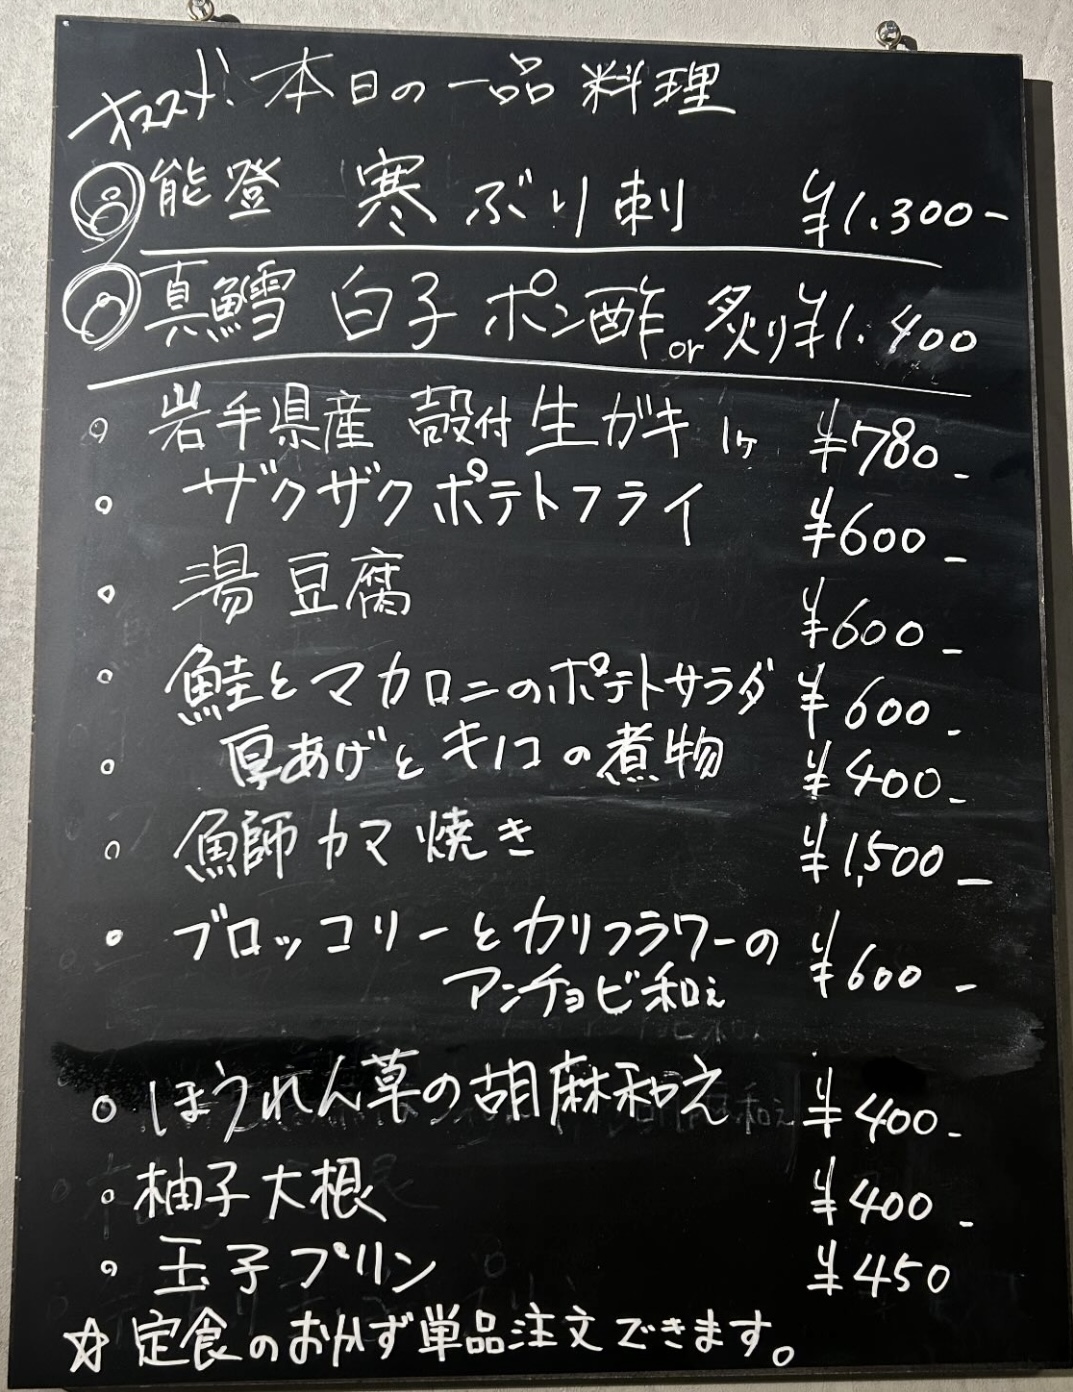 オススメ! 本日の一品料理
能登 寒ぶり刺 ¥1,300-
真鱈 白子 ポン酢 or 炙り ¥1,400
。岩手県産 殻付 生ガキ 1ヶ ¥780-
。ザクザクポテトフライ ¥600-
。湯豆腐 ¥600-
。鮭とマカロニのポテトサラダ ¥600-
。厚あげとキノコの煮物 ¥400-
。魚師カマ焼き ¥1,500-
。ブロッコリーとカリフラワーの
アンチョビ和え ¥600-
。ほうれん草の胡麻和え ¥400-
。柚子大根 ¥400-
。玉子プリン ¥450
☆定食のおかず単品注文できます。